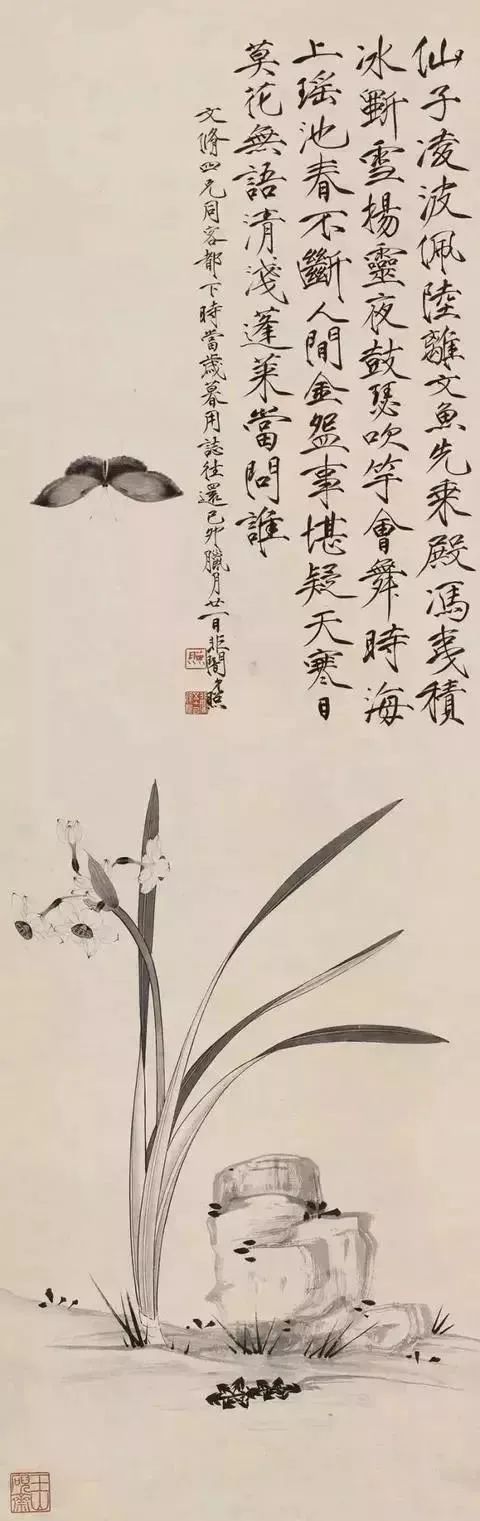 仙子凌波佩陸離文魚先乘殿馮夷積
冰斲雪揚靈夜鼓瑟吹竽會舞時海
上瑤池春不斷人間金盌事堪疑天寒日
莫花無語清淺蓬萊當問誰
文脩四兄同客都下時當歲暮用誌往還己卯臘月廿一日非闇照
照